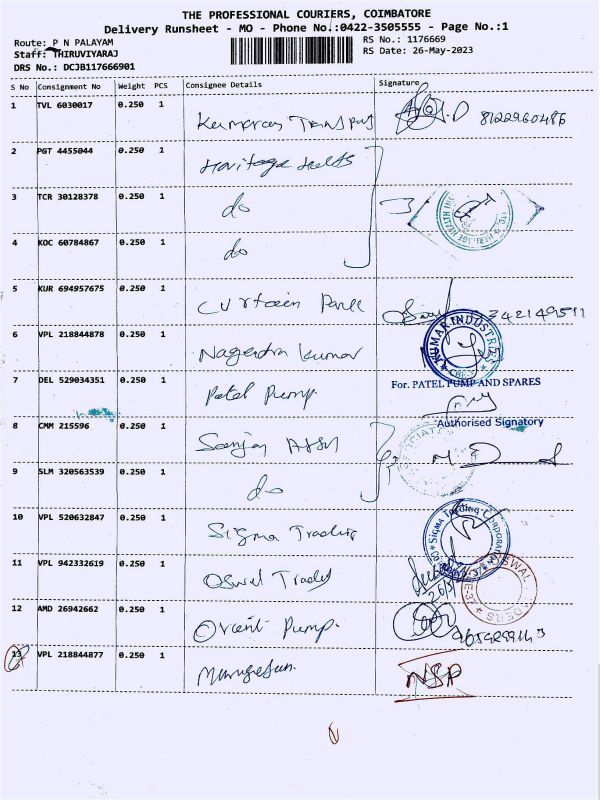 THE PROFESSIONAL COURIERS, COIMBATORE
Delivery Runsheet - MO - Phone No.:0422-3505555 - Page No.:1
Route: P N PALAYAM
RS No.: 1176669
Staff: THIRUVIYARAJ
RS Date: 26-May-2023
DRS No.: DCJB117666901
S No Consignment No Weight PCS Consignee Details Signature
1 TVL 6030017 0.250 1 Kumaran Transport 8122960486
2 PGT 4455044 0.250 1 Heritage
3 TCR 30128378 0.250 1 do
4 KOC 60784867 0.250 1 do
5 KUR 694957675 0.250 1 Curtain Park
6 VPL 218844878 0.250 1 Nagendra Kumar KUMAR INDUSTRIES
7 DEL 529034351 0.250 1 Patel Pump For. PATEL PUMP AND SPARES
Authorised Signatory
8 CMM 215596 0.250 1 Sanjay
9 SLM 320563539 0.250 1 do
10 VPL 520632847 0.250 1 Sigma Trading SIGMA TRADING
11 VPL 942332619 0.250 1 Oswal
12 AMD 26942662 0.250 1 Orient Pump.
13 VPL 218844877 0.250 1 Murugesan NSP